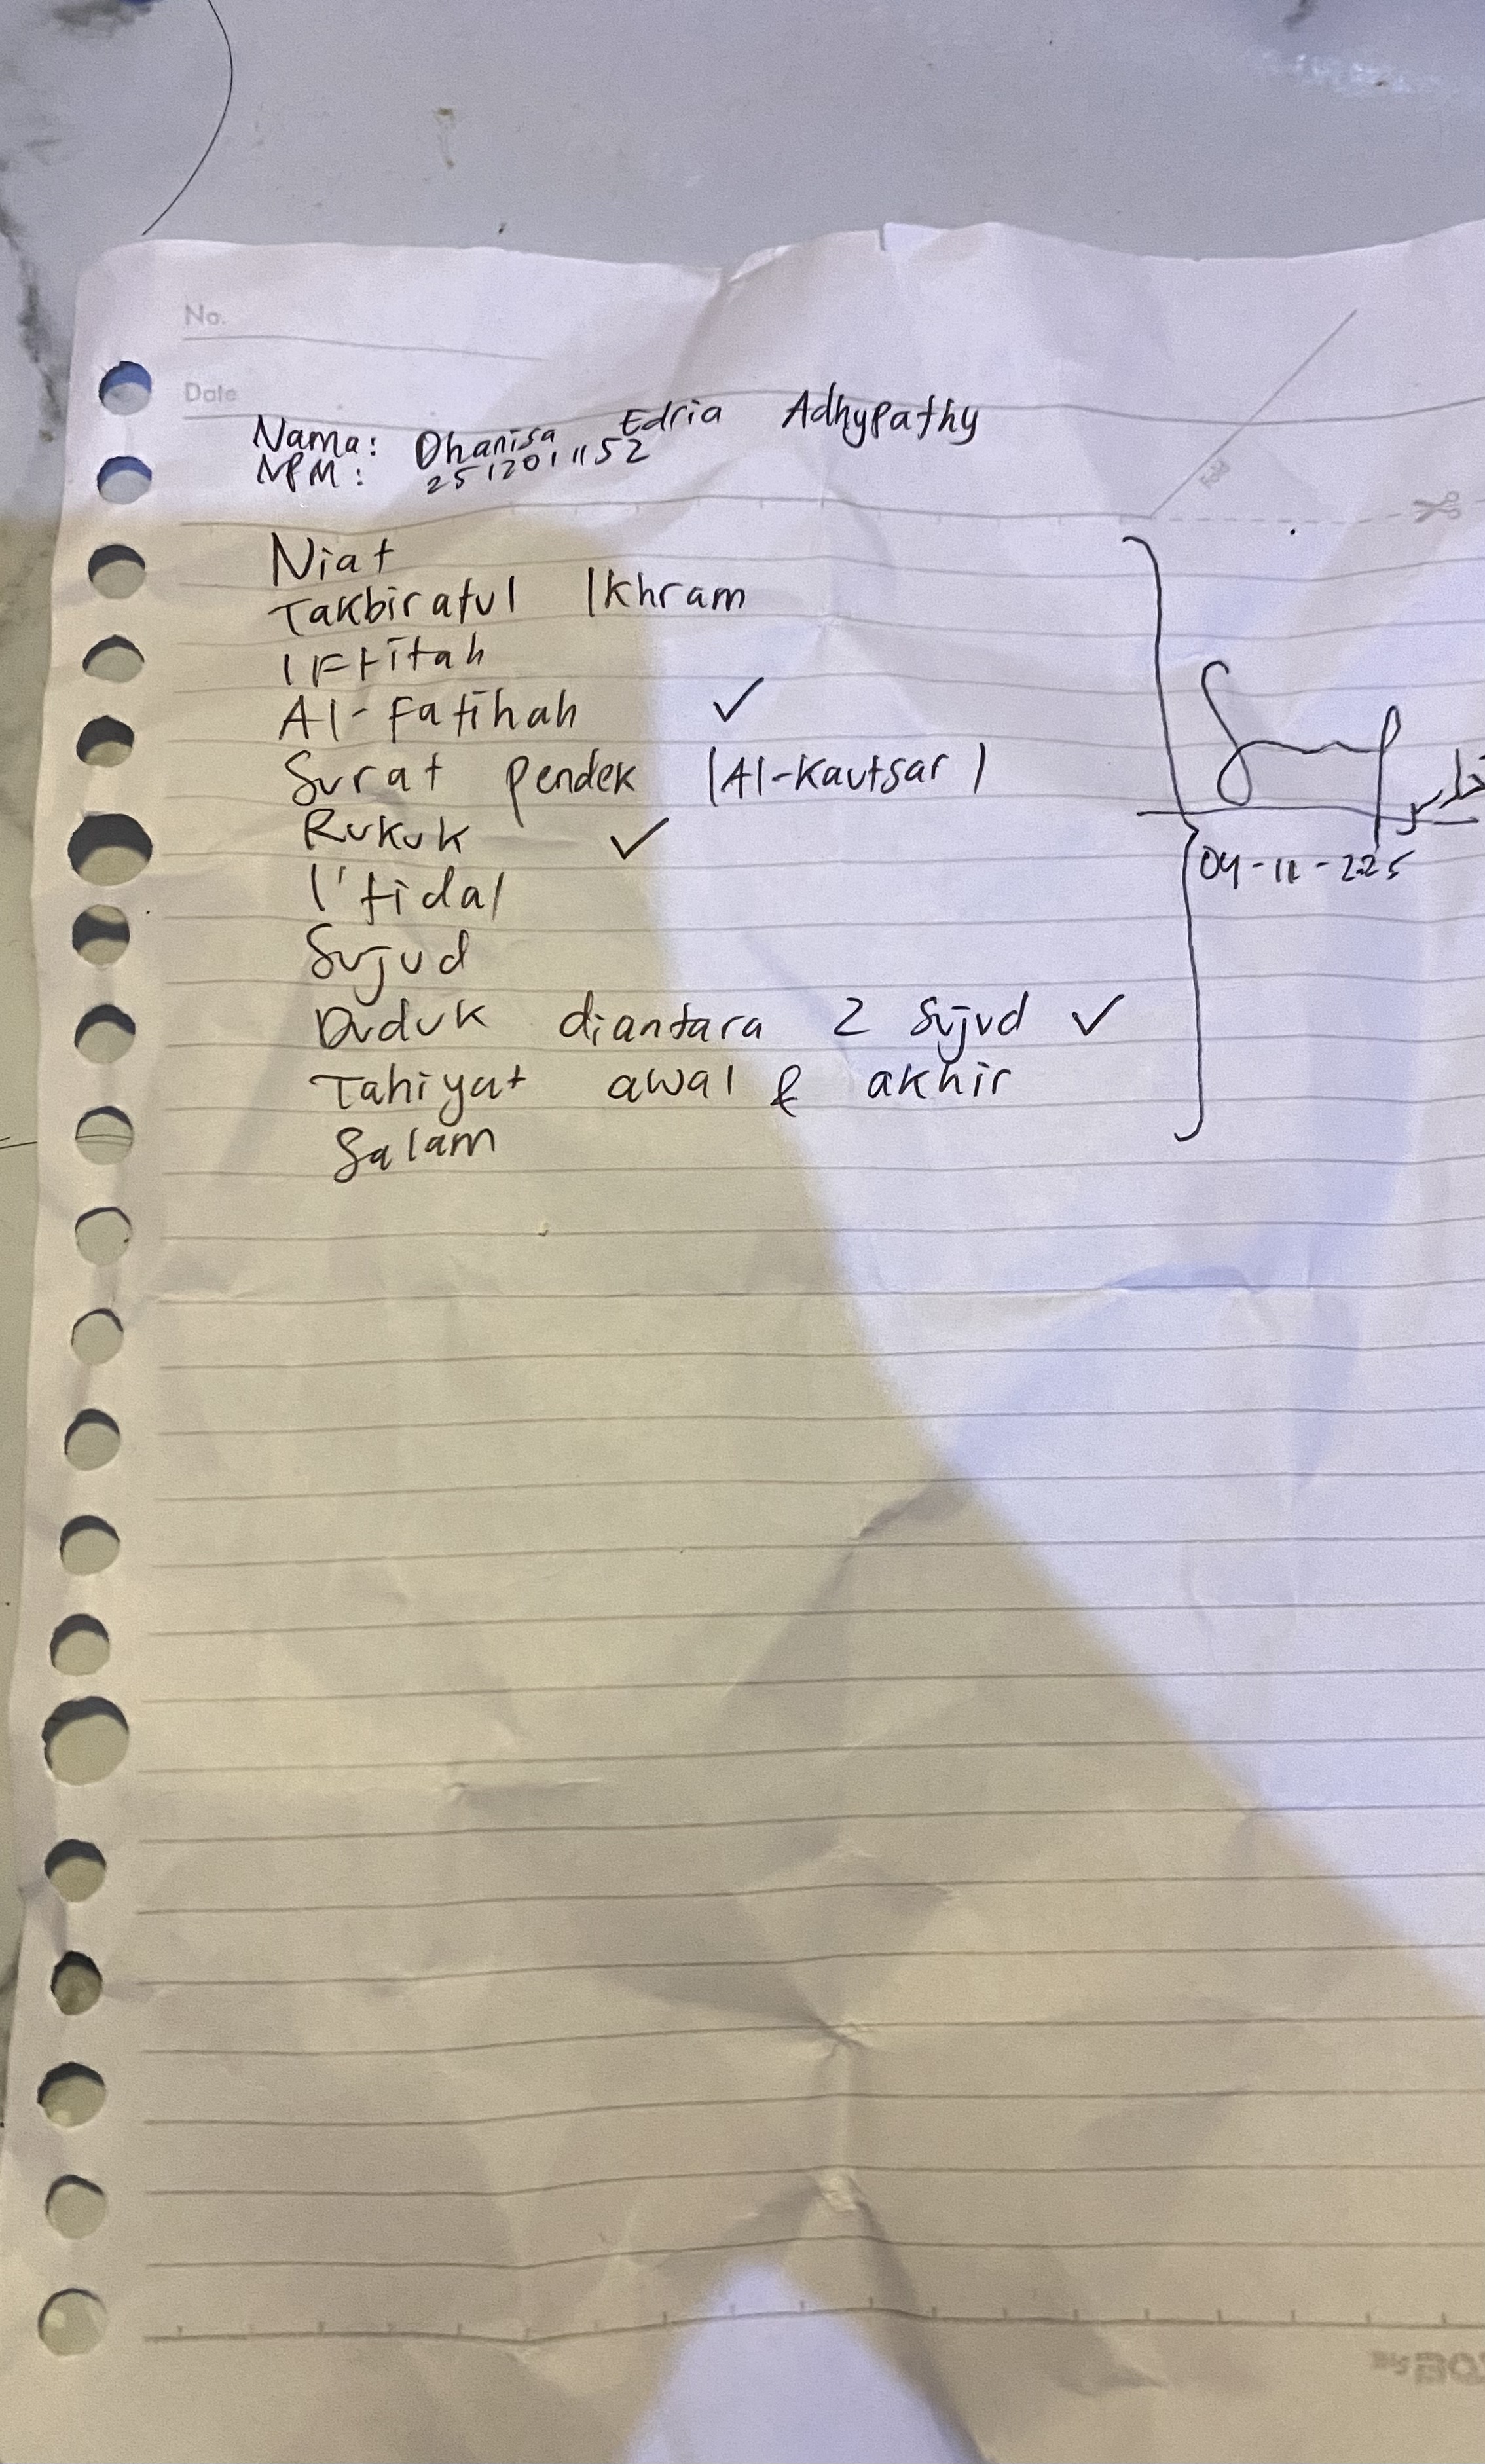 No.
Date
Nama: Dhanisa Edria Adhypathy
NPM: 2512011152
Fold
Niat
Takbiratul Ikhram
Iftitah
Al-Fatihah ✓
Surat pendek (Al-Kautsar)
Rukuk ✓
I'tidal
Sujud
Duduk diantara 2 sujud ✓
Tahiyat awal & akhir
Salam
04-11-225